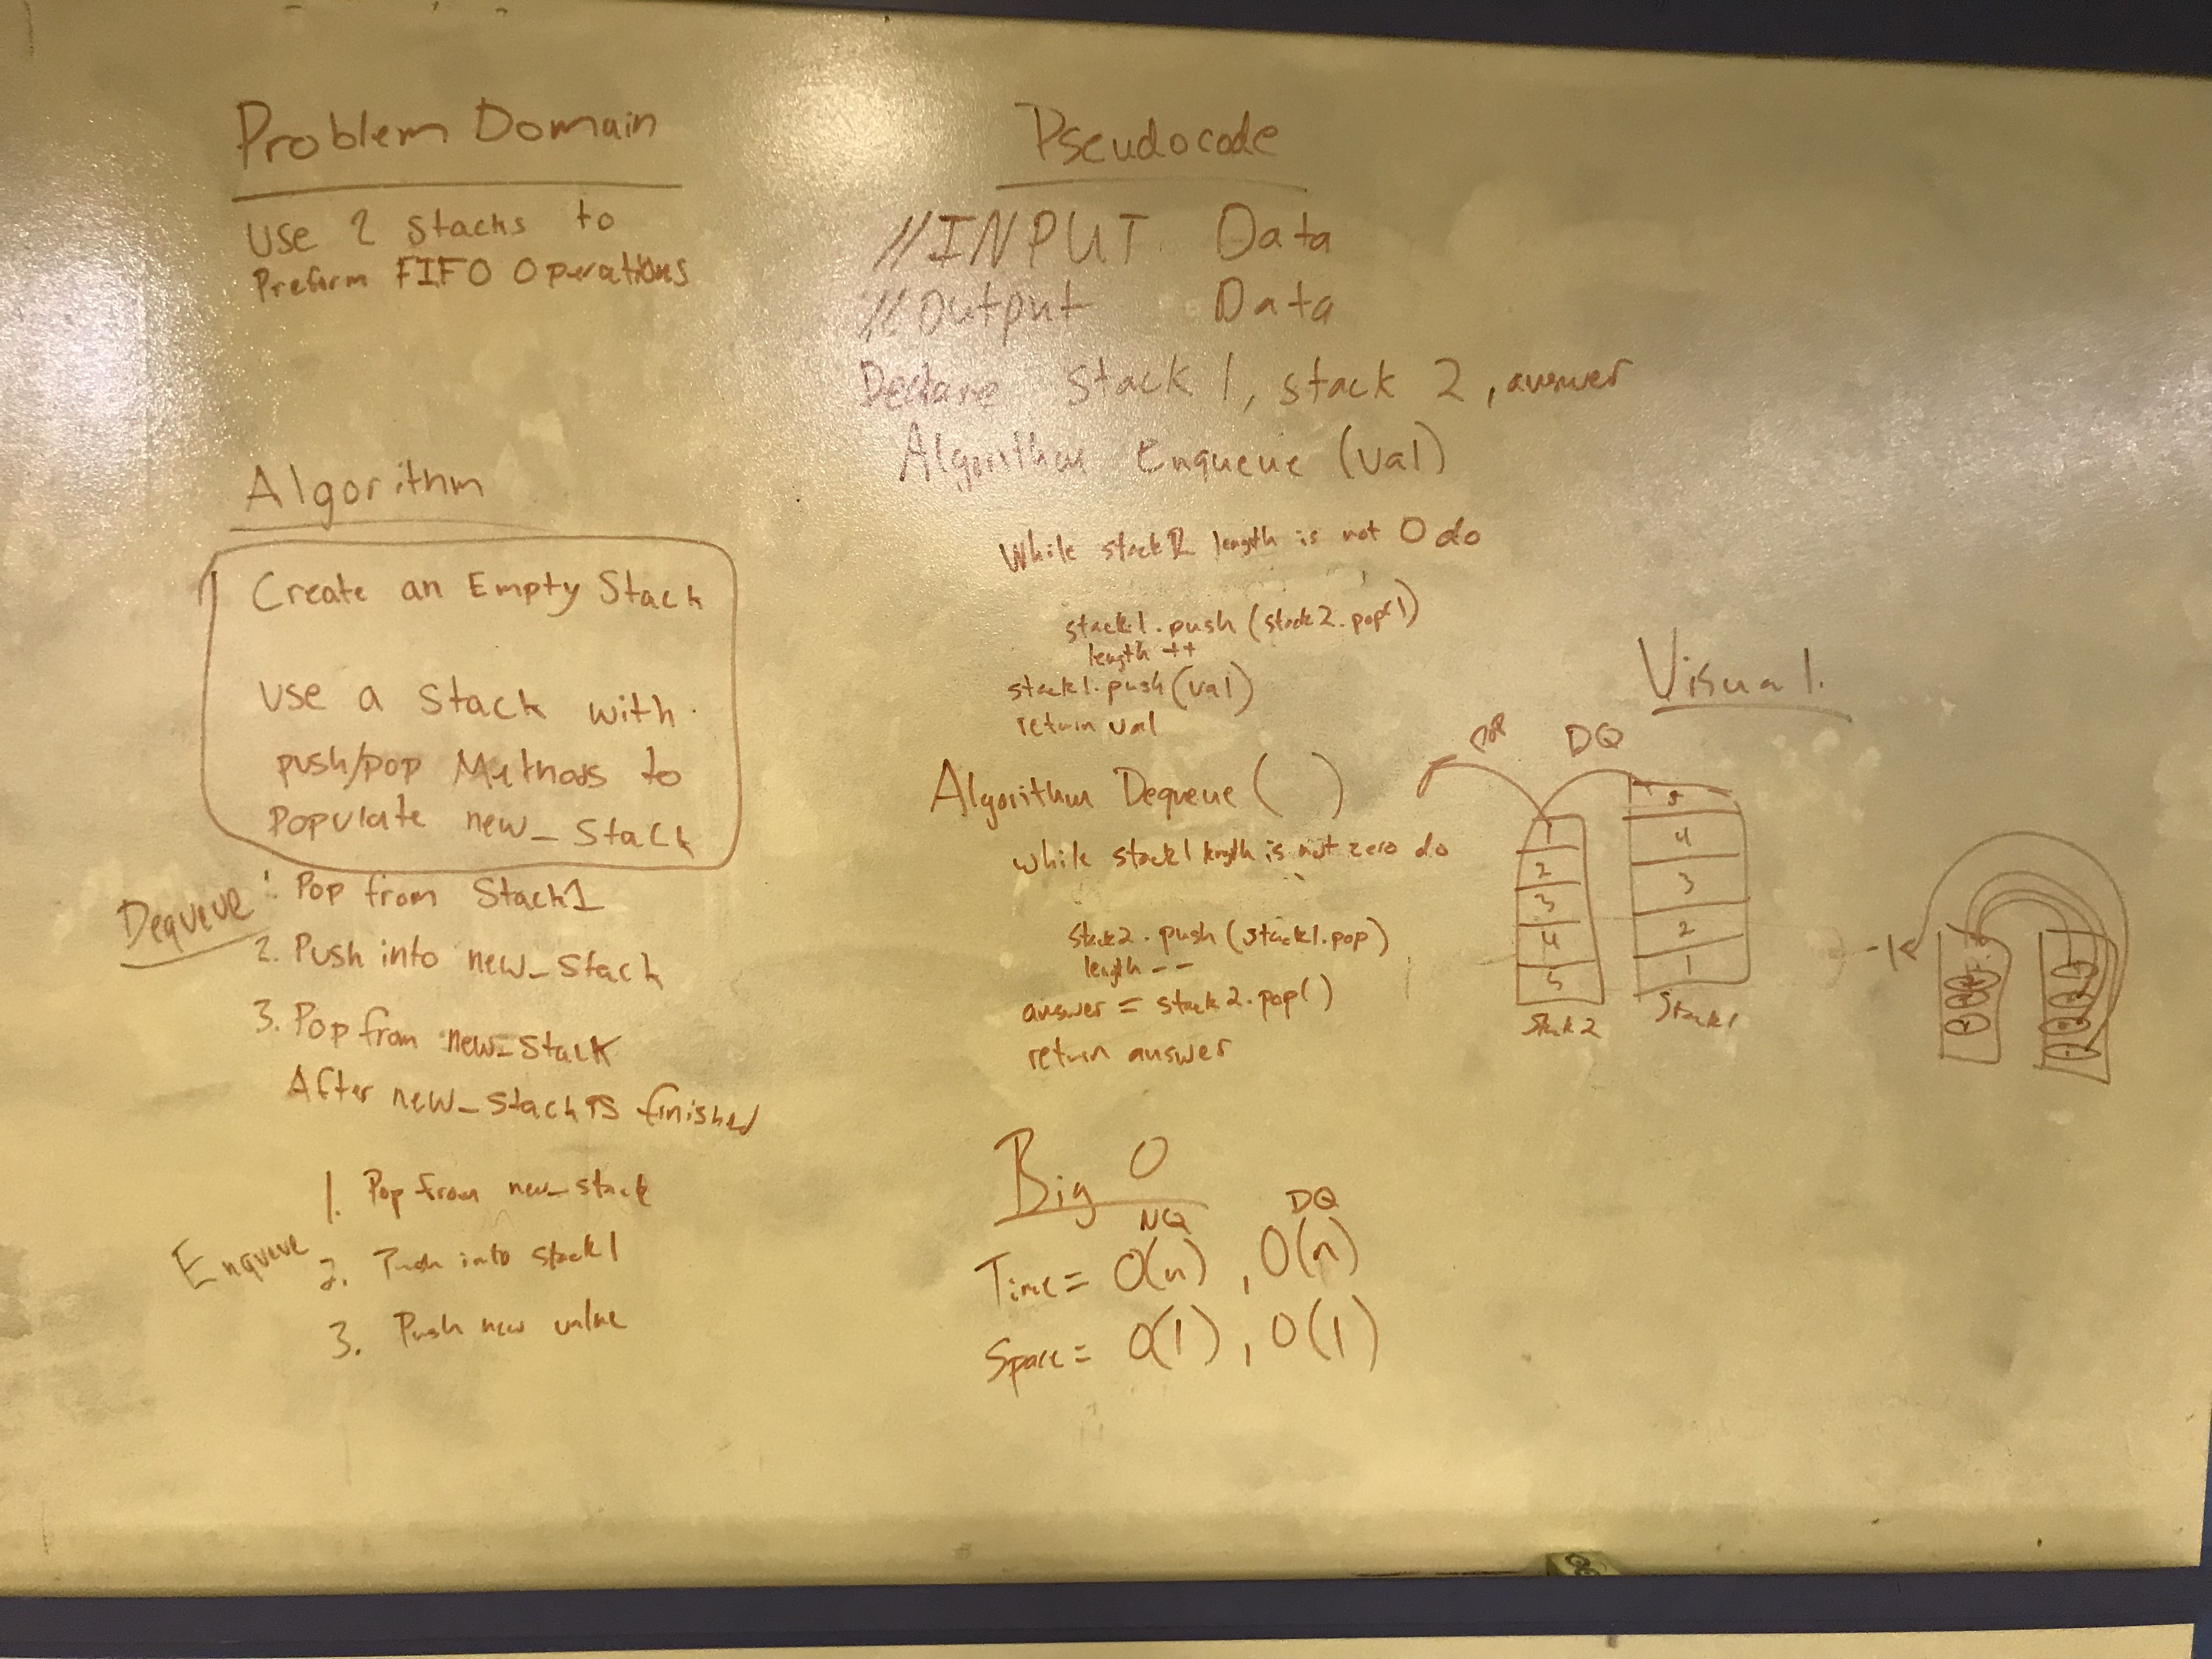 Problem Domain
Use 2 stacks to
Preform FIFO Operations
Algorithm
Create an Empty Stack
use a stack with
push/pop Methods to
Populate new_Stack
Dequeue
1. Pop from Stack1
2. Push into new_Stack
3. Pop from new_Stack
After new_stack is finished
Enqueue
1. Pop from new_stack
2. Push into stack1
3. Push new value
Pseudocode
//INPUT Data
//Output Data
Declare stack 1, stack 2, answer
Algorithm Enqueue (val)
While stack2 length is not 0 do
stack1.push(stack2.pop())
length ++
stack1.push(val)
return val
Algorithm Dequeue ( )
while stack1 length is not zero do
stack2.push(stack1.pop)
length --
answer = stack2.pop()
return answer
Big O
NQ DQ
Time = O(n), O(n)
Space = O(1), O(1)
Visual.
pop DQ
1
2
3
4
5
Stack2
5
4
3
2
1
Stack1